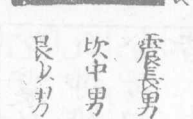 震長男
坎中男
艮少男